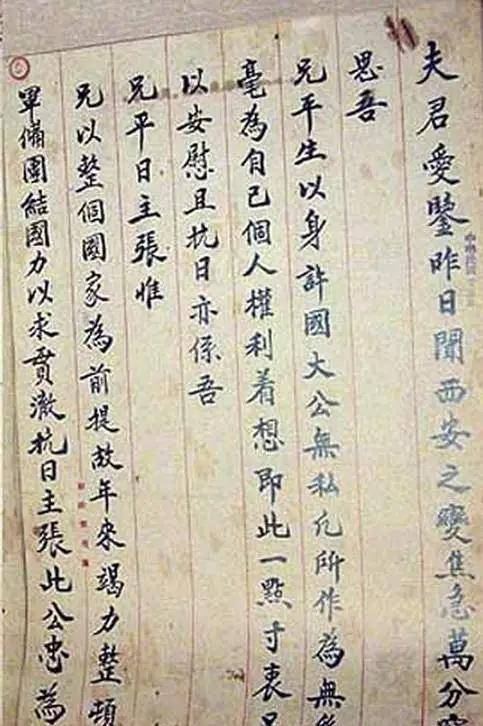 夫君愛鑒昨日聞西安之變焦急萬分
思吾
兄平生以身許國大公無私凡所作為無
毫為自己個人權利着想即此一點寸衷
以安慰且抗日亦係吾
兄平日主張惟
兄以整個國家為前提故年來竭力整頓
軍備團結國力以求貫澈抗日主張此公忠為